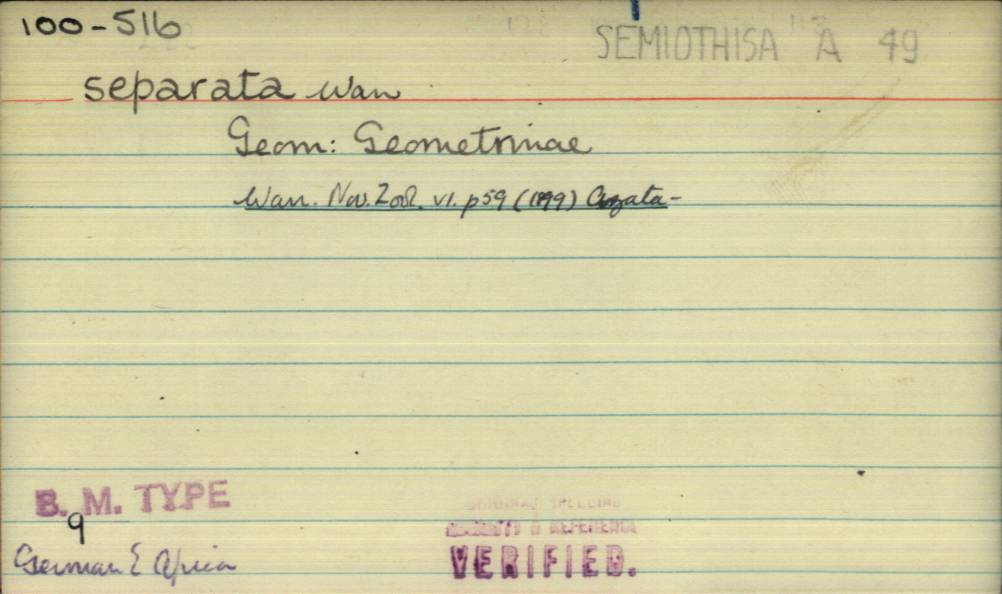 100-516
SEMIOTHISA A 49
separata Warr
Geom: Geometrinae
Warr. Nov. Zool. vi. p59 (1899) Azata-
B. M. TYPE
♀
German E Africa
ORIGINAL SPELLING
& REFERENCE
VERIFIED.